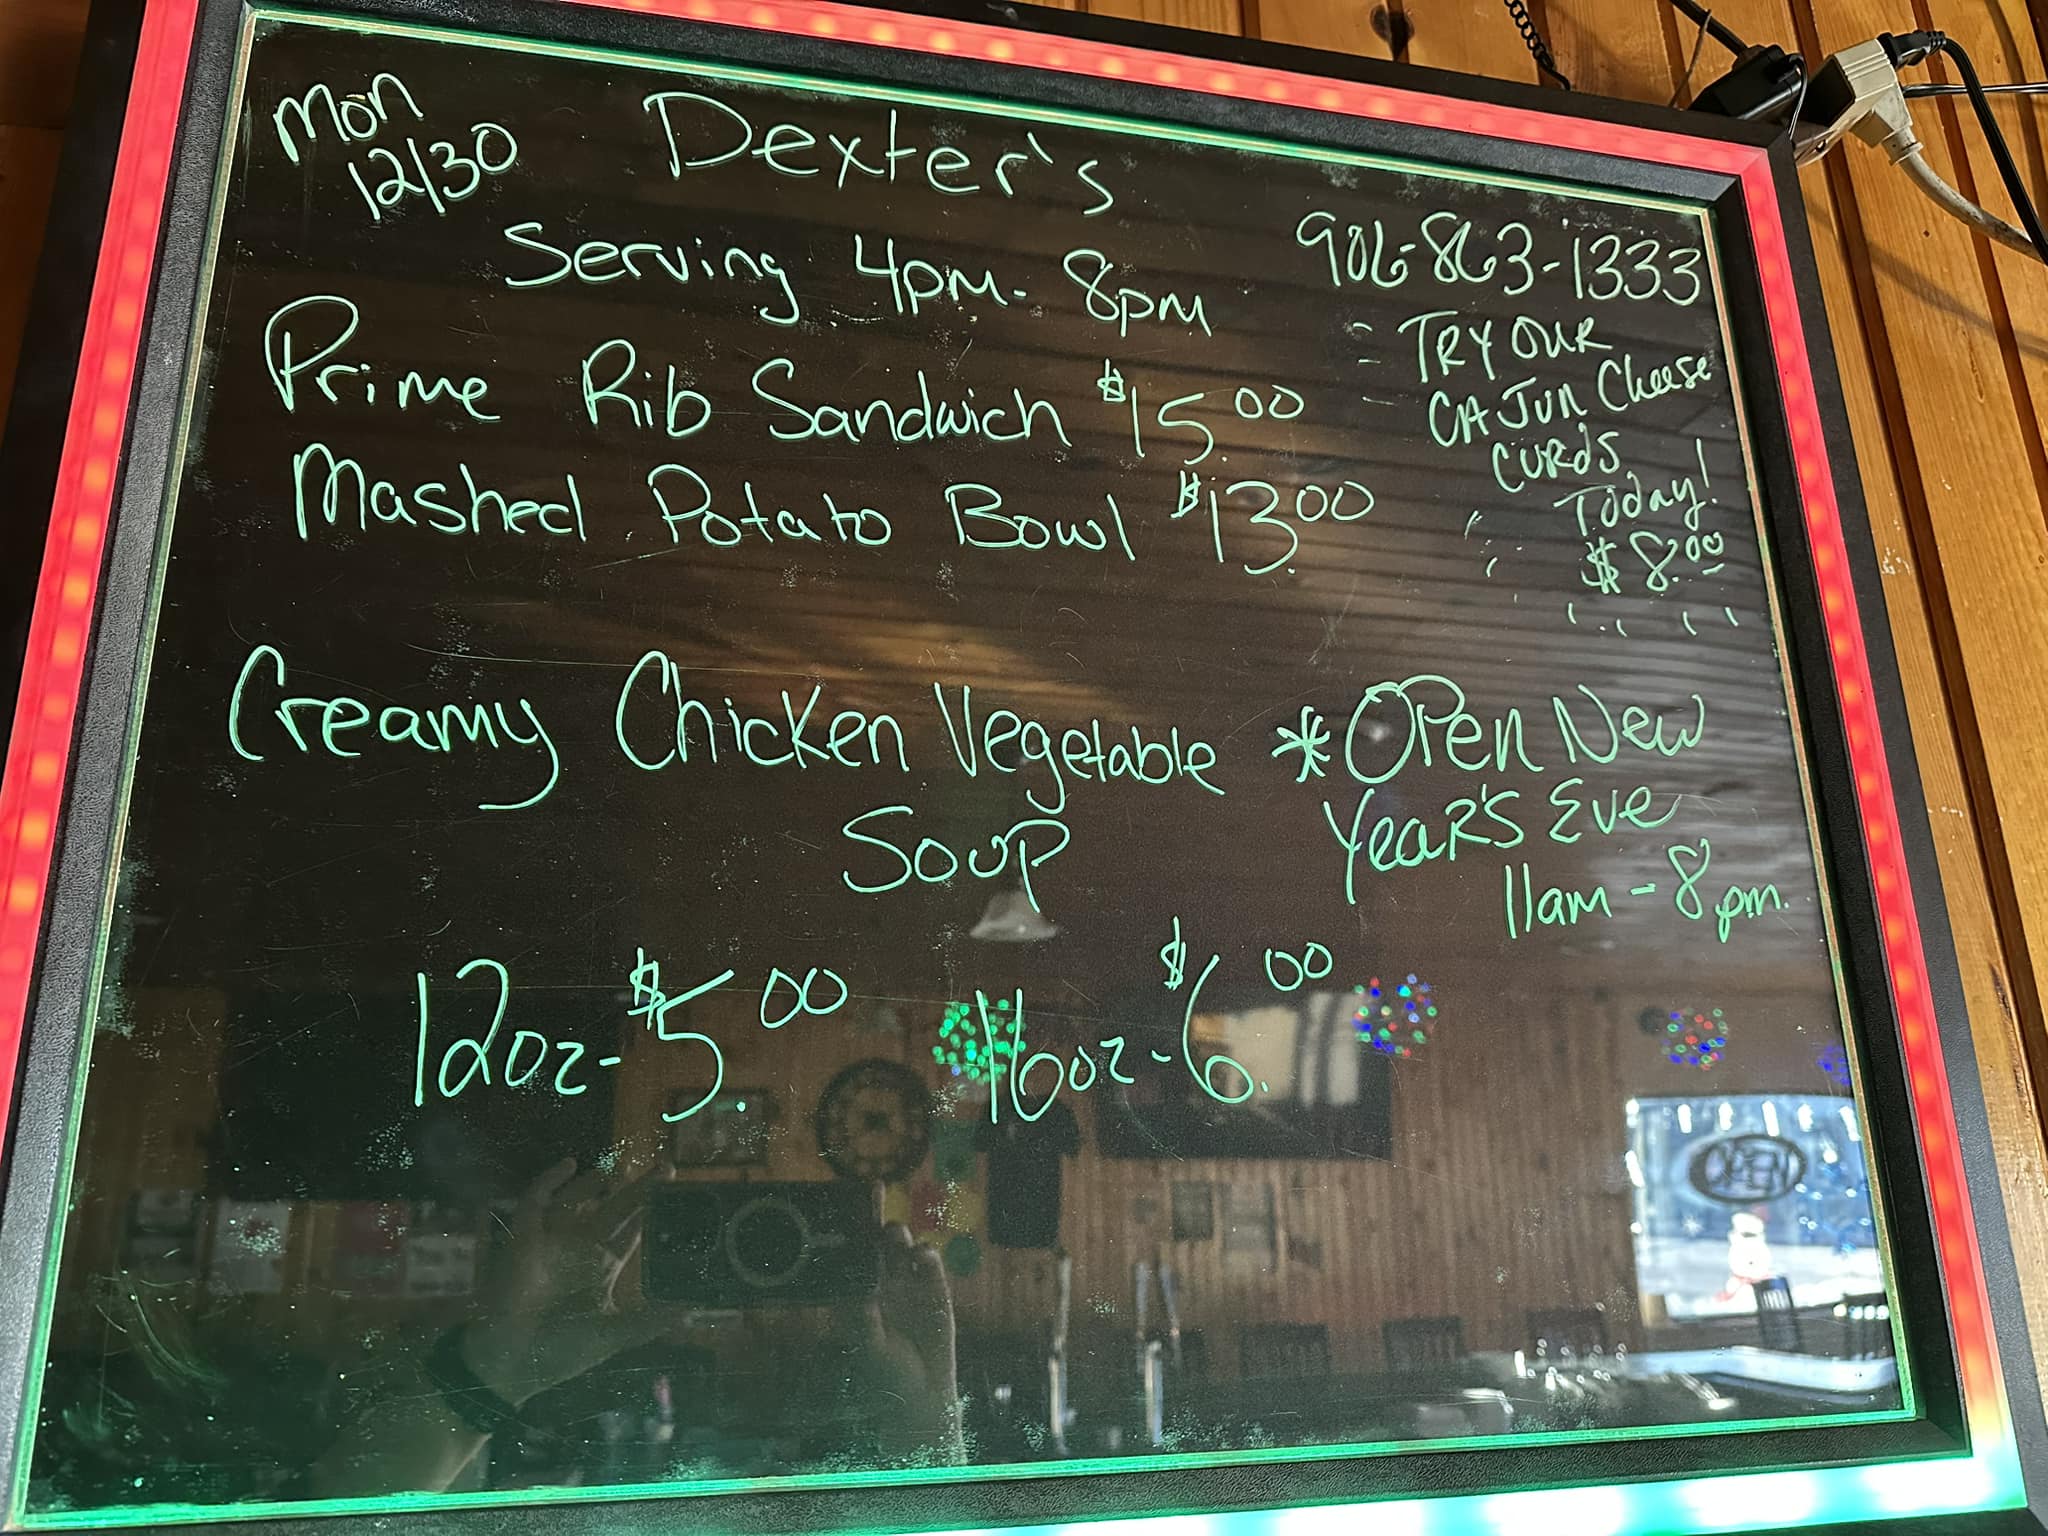 Mon
12/30
Dexter's
906-863-1333
Serving 4pm - 8pm
Prime Rib Sandwich $15.00
Mashed Potato Bowl $13.00
TRY OUR
CAJUN Cheese
CURdS
Today!
$8.00
Creamy Chicken Vegetable
Soup
12oz - $5.00 16oz - $6.00
*OPen New
YeaR'S Eve
11am - 8pm.
OPEN